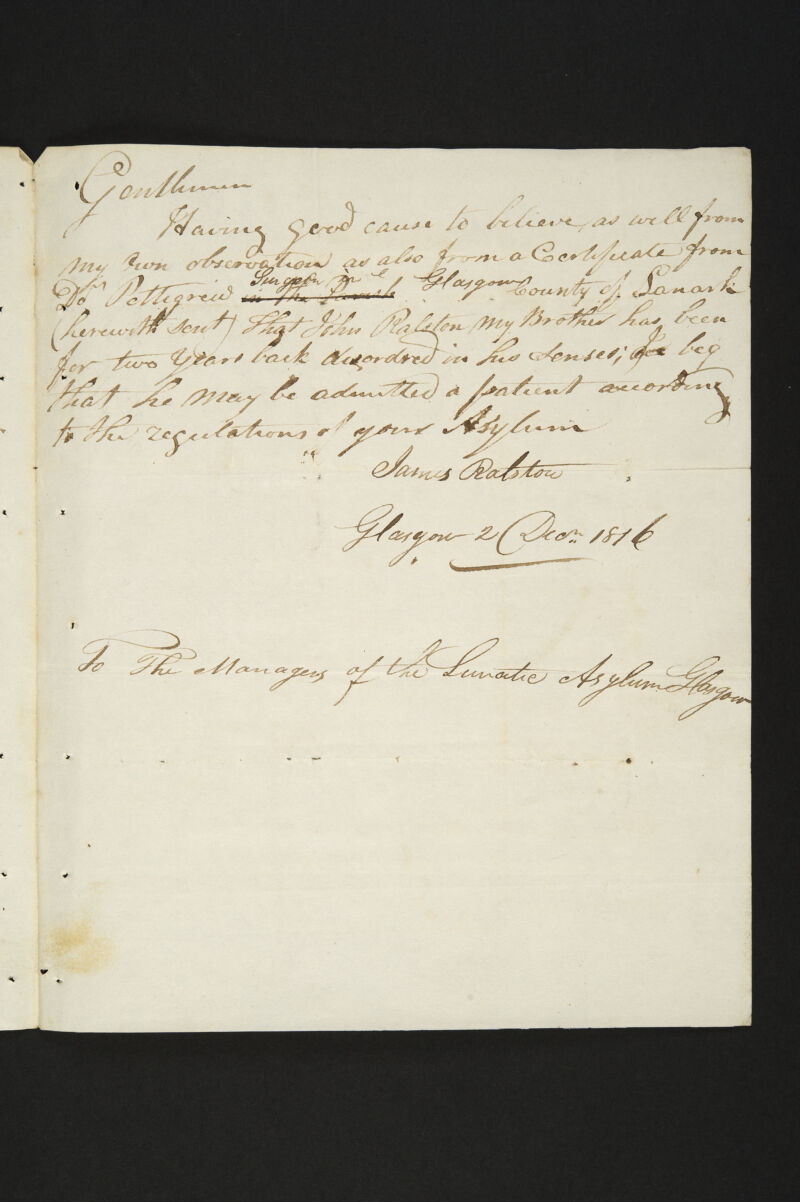 Gentlemen
Having good cause to believe, as well from
my own observation as also from a Certificate from
Dr. Pettigrew Surgeon in Glasgow County of Lanark
(herewith sent) That John Ralston my Brother has been
for two years back disordred in his senses; I beg
that he may be admitted a patient according
to the regulations of your Asylum
James Ralston
Glasgow 2 Decr. 1816
To The Managers of the Lunatic Asylum Glasgow